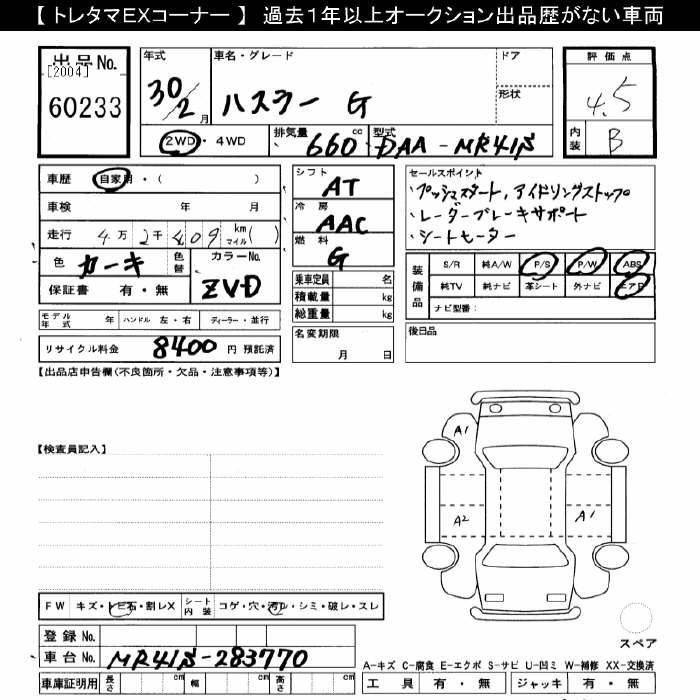 【トレタマEXコーナー】 過去1年以上オークション出品歴がない車両
出品No.
[2004]
60233
年式
30/2月
車名・グレード
ハスラー G
ドア
形状
2WD・4WD
排気量 660 cc
型式 DAA-MR41S
評価点
4.5
内装 B
車歴 自家用・( )
車検 年 月
走行 4万2千 09 km マイル( )
色 カーキ 色替
カラーNo. ZVD
保証書 有・無
シフト AT
冷房 AAC
燃料 G
乗車定員 名
積載量 kg
総重量 kg
セールスポイント
・プッシュスタート,アイドリングストップ
・レーダーブレーキサポート
・シートヒーター
装備品
S/R 純A/W P/S P/W ABS
純TV 純ナビ 革シート 外ナビ エアB
ナビ型番:
モデル年式 年 ハンドル 左・右 ディーラー・並行
名変期限 月 日
後日品
リサイクル料金 8400 円 預託済
【出品店申告欄(不良箇所・欠品・注意事項等)】
【検査員記入】
A1
A2
A1
FW キズ・トビ石・割レX シート内装 コゲ・穴・汚レ・シミ・破レ・スレ
登録No.
車台No. MR41S-283770
車庫証明用 長さ cm 幅 cm 高さ cm
スペア
A-キズ C-腐食 E-エクボ S-サビ U-凹ミ W-補修 XX-交換済
工具 有・無 ジャッキ 有・無